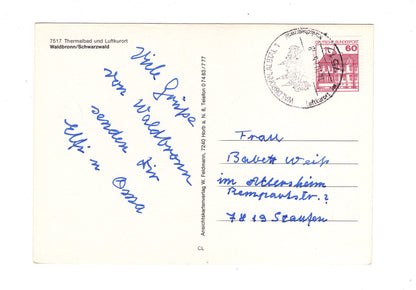 7517 Thermalbad und Luftkurort
Waldbronn/Schwarzwald
Viele Grüße
von Waldbronn
senden Dir
Elfi u Oma
Ansichtskartenverlag W. Feldmann, 7240 Horb a. N. 8, Telefon 0 74 83/7 77
CL
WALDBRONN, ALBTAL 1
Luftkurort
DEUTSCHE BUNDESPOST
60
Frau
Babett Weiß
im Altersheim
7813 Staufen